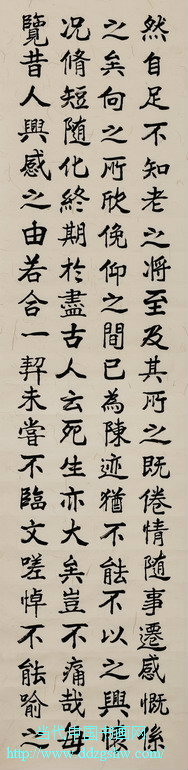 然自足不知老之将至及其所之既倦情随事遷感慨係
之矣向之所欣俛仰之間已為陳迹猶不能不以之興懷
况脩短随化終期於盡古人云死生亦大矣豈不痛哉每
覽昔人興感之由若合一契未嘗不臨文嗟悼不能喻之
当代中国书画网
http://www.ddzgshw.com/